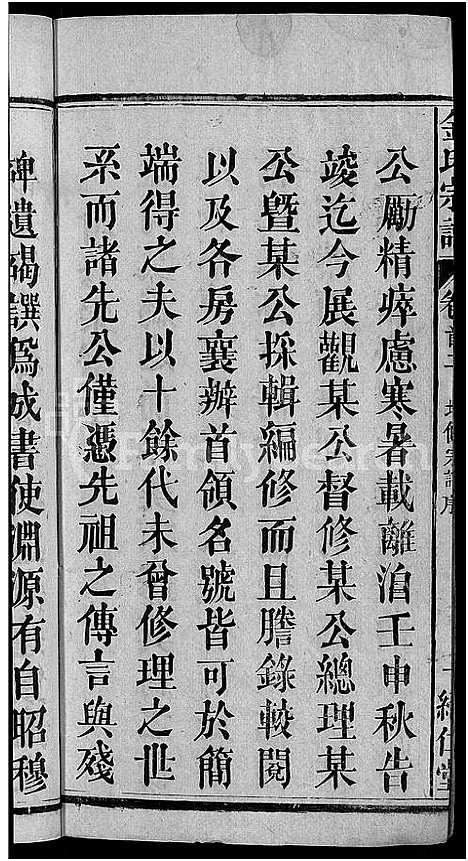 金氏宗譜
卷首
增修宗譜序
公勵精瘁慮寒暑載離洎壬申秋告
竣迄今展觀某公督修某公總理某
公暨某公採輯編修而且謄錄較閱
以及各房襄辦首領名號皆可於簡
端得之夫以十餘代未曾修理之世
系而諸先公僅憑先祖之傳言與殘
碑遺碣譔爲成書使淵源有自昭穆